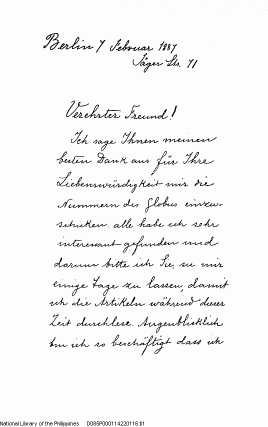 Berlin 7 Februar 1887
Jäger Str. 71
Verehrter Freund!
Ich sage Ihnen meinen
besten Dank aus für Ihre
Liebenswürdigkeit mir die
Nummern des Globus einzu
schicken alle habe ich sehr
interesant gefunden und
darum bitte ich Sie, sie mir
einige Tage zu lassen, damit
ich die Artikeln während dieser
Zeit durchlese. Augenblicklich
bin ich so beschäftigt dass ich
National Library of the Philippines D086P00011422011601